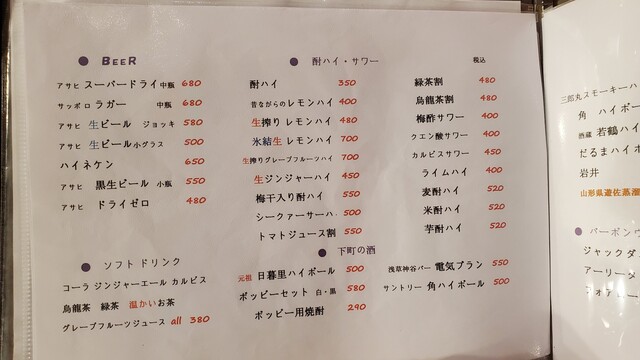 ● BEER
アサヒ スーパードライ 中瓶 680
サッポロ ラガー 中瓶 680
アサヒ 生ビール ジョッキ 580
アサヒ 生ビール 小グラス 500
ハイネケン 650
アサヒ 黒生ビール 小瓶 550
アサヒ ドライゼロ 480
● ソフトドリンク
コーラ ジンジャーエール カルピス
烏龍茶 緑茶 温かいお茶
グレープフルーツジュース all 380
● 酎ハイ・サワー
税込
酎ハイ 350
昔ながらのレモンハイ 400
生搾り レモンハイ 480
氷結生 レモンハイ 700
生搾りグレープフルーツハイ 700
生ジンジャーハイ 450
梅干入り酎ハイ 550
シークァーサーハイ 500
トマトジュース割 550
緑茶割 480
烏龍茶割 480
梅酢サワー 400
クエン酸サワー 400
カルピスサワー 450
ライムハイ 400
麦酎ハイ 520
米酎ハイ 520
芋酎ハイ 520
● 下町の酒
元祖 日暮里ハイボール 500
ホッピーセット 白・黒 580
ホッピー用焼酎 290
浅草神谷バー 電気ブラン 550
サントリー 角ハイボール 500
三郎丸スモーキーハ
角 ハイボー
酒蔵 若鶴ハイ
だるまハイボ
岩井
山形県遊佐蒸溜
● バーボンウ
ジャックダ
アーリータ
フォア